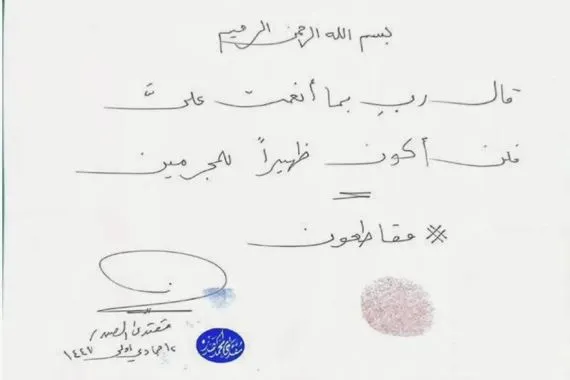 بسم الله الرحمن الرحيم
قال رب بما أنعمت عليَّ
فلن أكون ظهيراً للمجرمين
※ مقاطعون
مقتدى الصدر
١٢ جمادي اولى ١٤٤٧